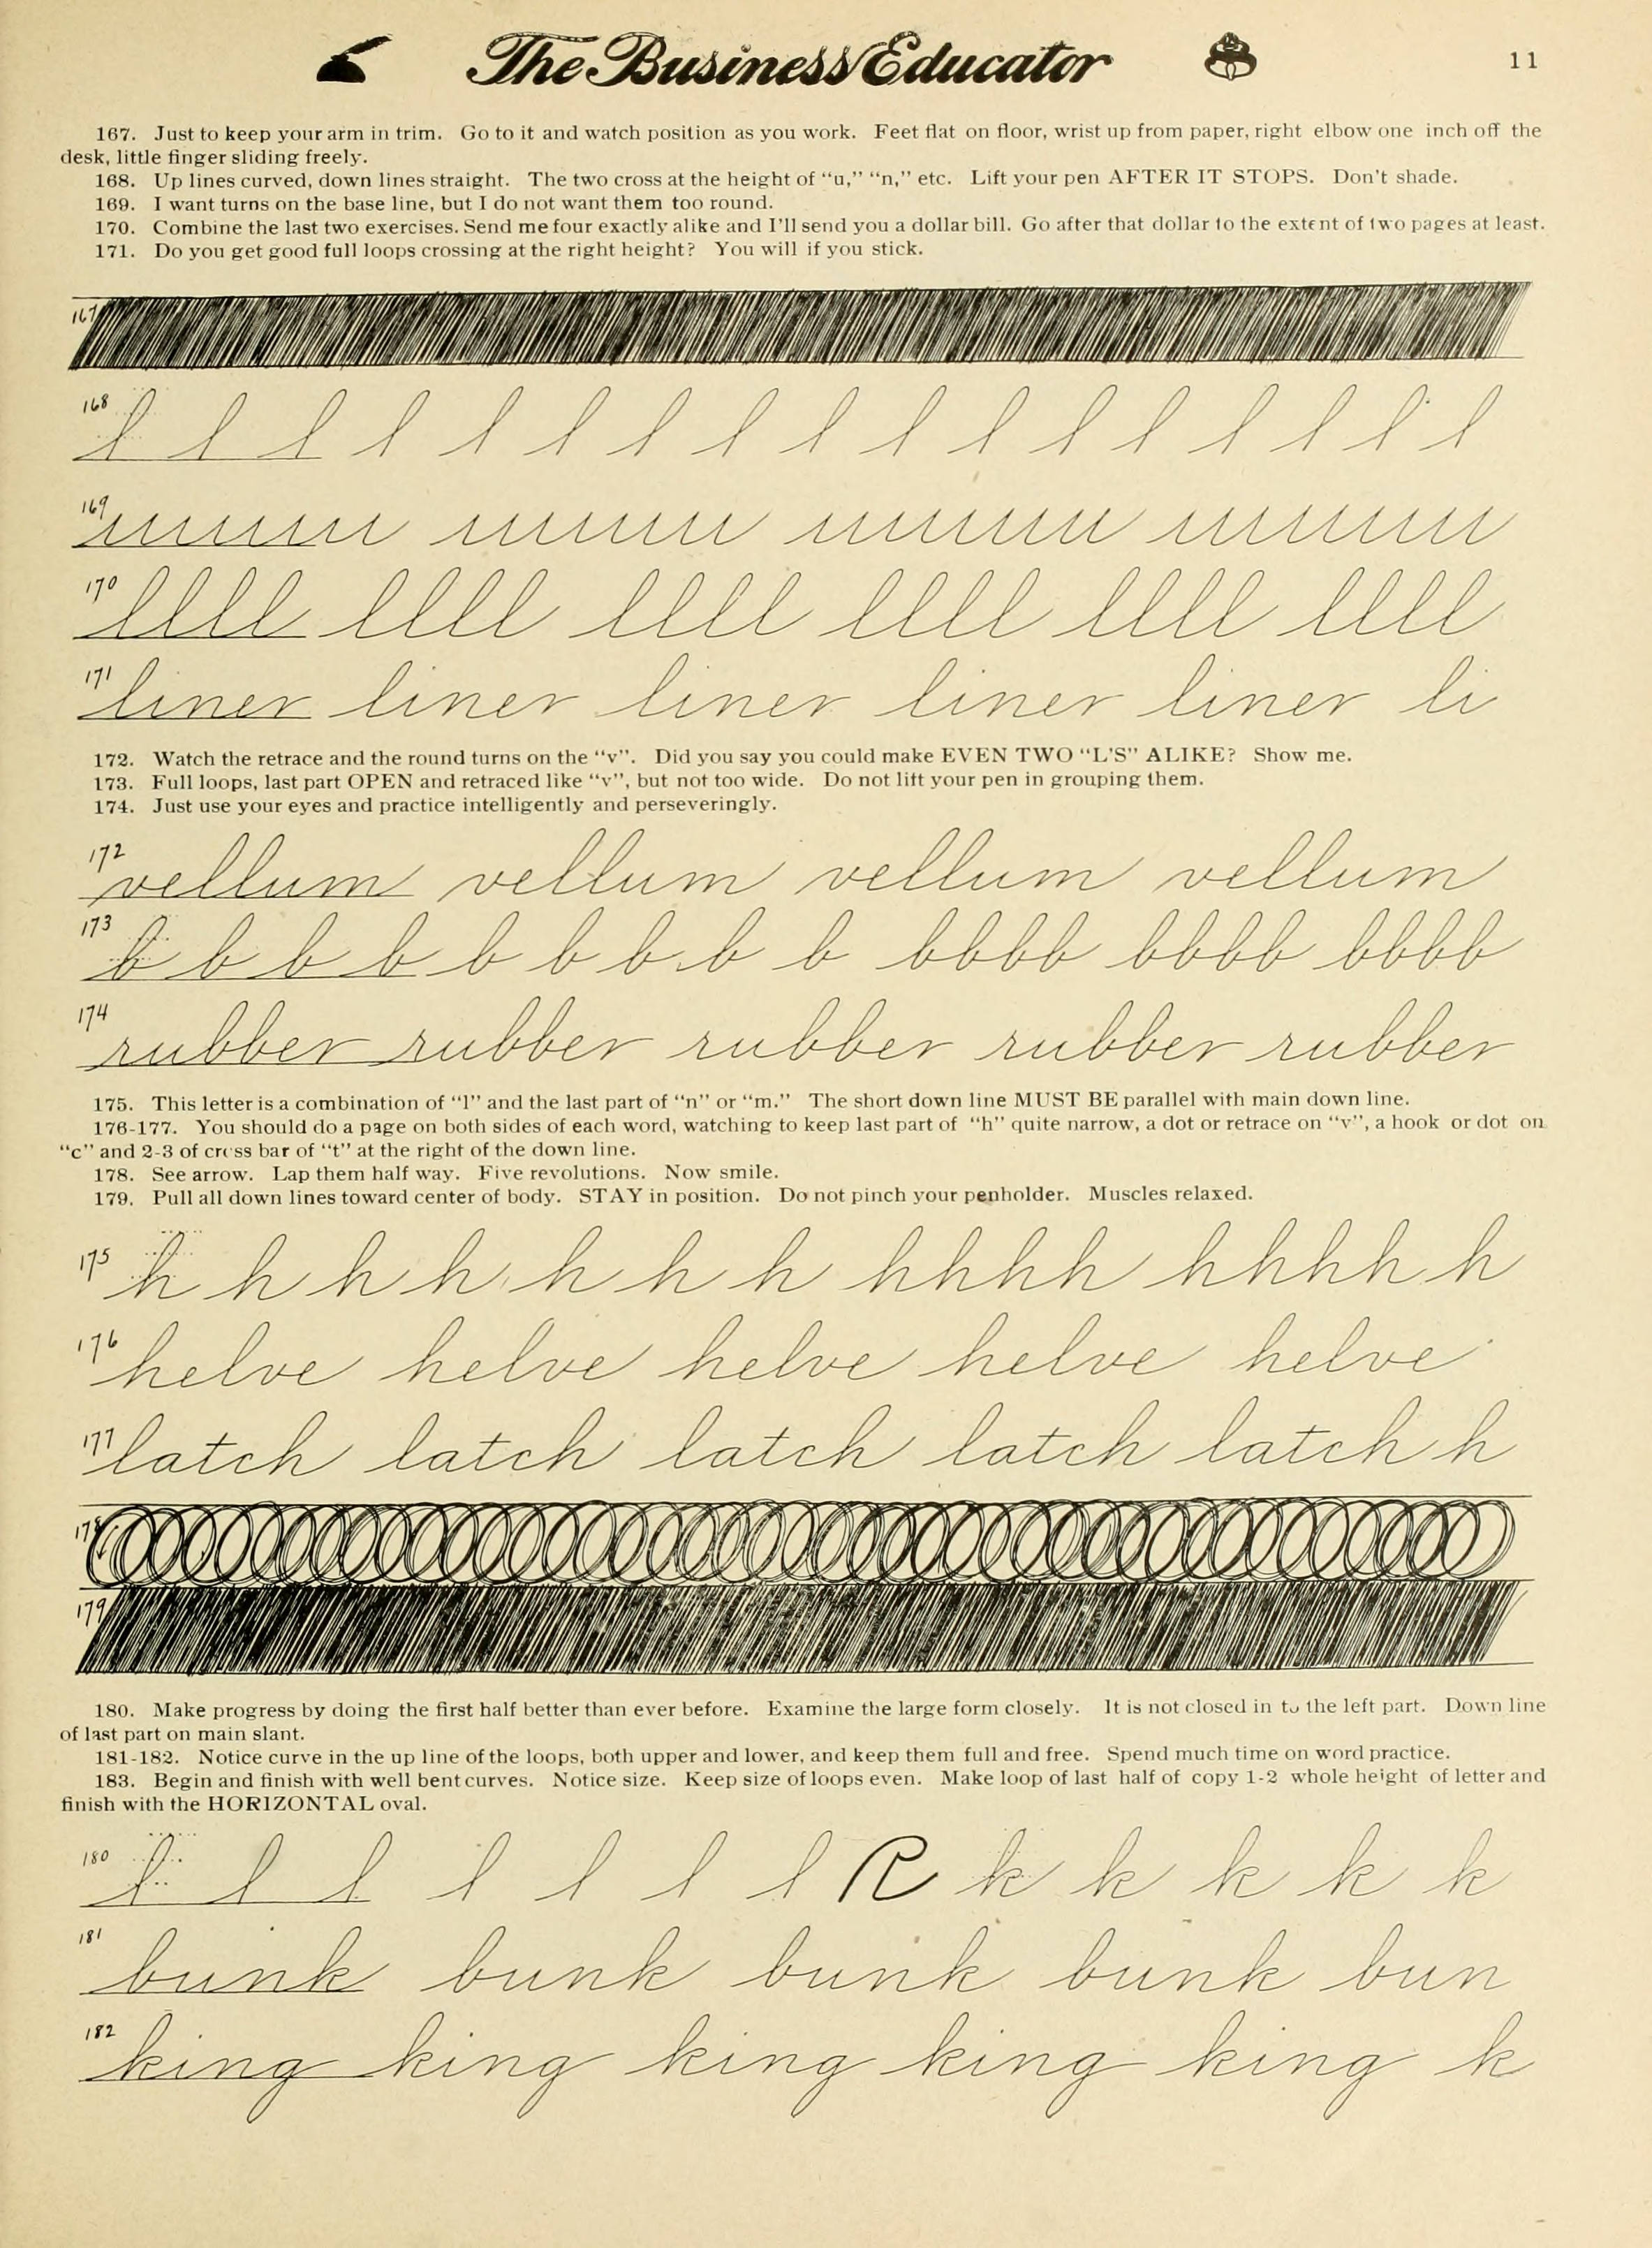 The Business Educator
11
167. Just to keep your arm in trim. Go to it and watch position as you work. Feet flat on floor, wrist up from paper, right elbow one inch off the
desk, little finger sliding freely.
168. Up lines curved, down lines straight. The two cross at the height of “u,” “n,” etc. Lift your pen AFTER IT STOPS. Don't shade.
169. I want turns on the base line, but I do not want them too round.
170. Combine the last two exercises. Send me four exactly alike and I'll send you a dollar bill. Go after that dollar to the extent of two pages at least.
171. Do you get good full loops crossing at the right height? You will if you stick.
167
168 l l l l l l l l l l l l l l l l l
169
170 llll llll llll llll llll llll
171 liner liner liner liner liner li
172. Watch the retrace and the round turns on the “v”. Did you say you could make EVEN TWO “L'S” ALIKE? Show me.
173. Full loops, last part OPEN and retraced like “v”, but not too wide. Do not lift your pen in grouping them.
174. Just use your eyes and practice intelligently and perseveringly.
172 vellum vellum vellum vellum
173 b b b b b b b b b bbbb bbbb bbbb
174 rubber rubber rubber rubber rubber
175. This letter is a combination of “l” and the last part of “n” or “m.” The short down line MUST BE parallel with main down line.
176-177. You should do a page on both sides of each word, watching to keep last part of “h” quite narrow, a dot or retrace on “v”, a hook or dot on
“c” and 2-3 of cross bar of “t” at the right of the down line.
178. See arrow. Lap them half way. Five revolutions. Now smile.
179. Pull all down lines toward center of body. STAY in position. Do not pinch your penholder. Muscles relaxed.
175 h h h h h h h hhhh hhhh h
176 helve helve helve helve helve
177 latch latch latch latch latch h
178
179
180. Make progress by doing the first half better than ever before. Examine the large form closely. It is not closed in to the left part. Down line
of last part on main slant.
181-182. Notice curve in the up line of the loops, both upper and lower, and keep them full and free. Spend much time on word practice.
183. Begin and finish with well bent curves. Notice size. Keep size of loops even. Make loop of last half of copy 1-2 whole height of letter and
finish with the HORIZONTAL oval.
180 l l l l l l l k k k k k
181 bunk bunk bunk bunk bun
182 king king king king king k